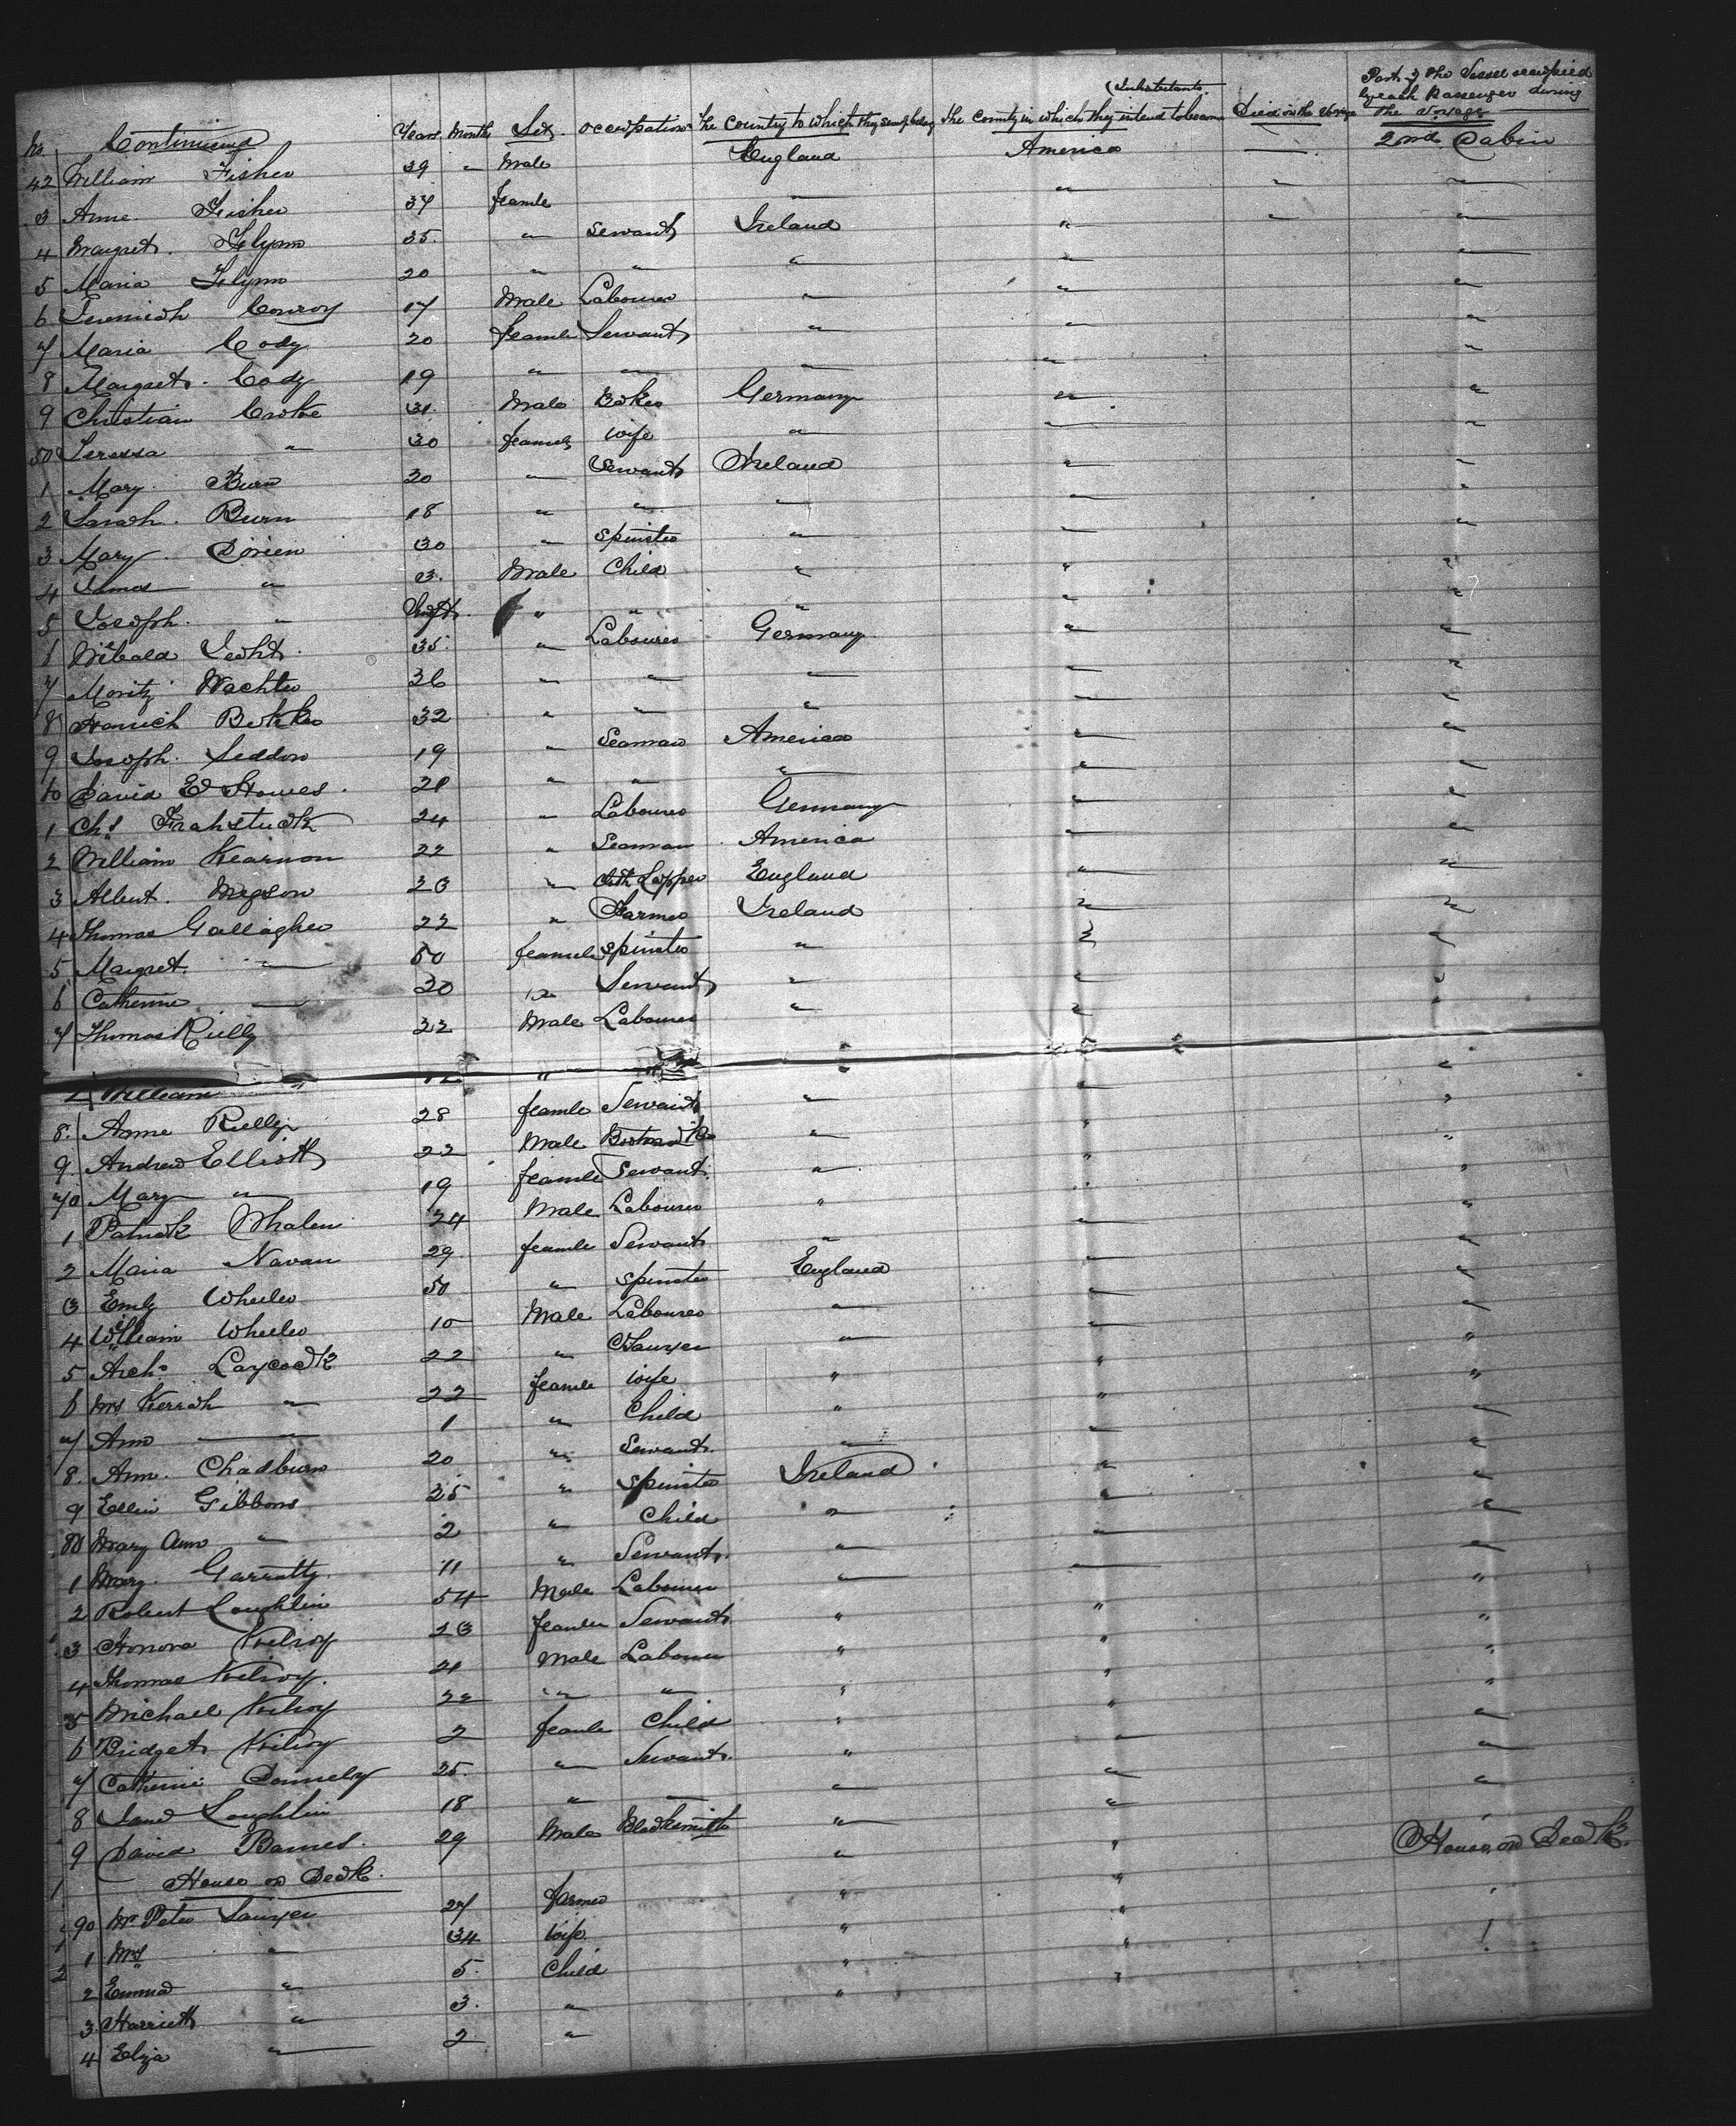 (Inhabitants.
Part of the Vessel occupied
by each Passenger during
the Voyage
No. Continued Years Months Sex. occupation The country to which they severally belong The country in which they intend to become Died on the Voyage
42 William Fisher 39 " Male England America — 2nd Cabin
3 Anne Fisher 34 feamle — " " "
4 Margret. Flynn 35. " Servant Ireland " " "
5 Maria Flynn 20 " " " " "
6 Jeremiah Conroy 17 Male Labourer " " "
7 Maria Cody 20 feamle Servant " " "
8 Margret. Cody 19 " " " " "
9 Christian 31. Male Baker Germany " "
50 Teressa " 30 feamle wife " " "
1 Mary Burn 20 " Servant Ireland " "
2 Sarah. Burn 18 " " " " "
3 Mary 30 " Spinster " " "
4 James " 3. Male Child " " "
5 Joseph. " Inft. " " " " "
6 35. " Labourer Germany " "
7 Moritz Wachter 36 " " " " "
8 32 " " " " "
9 Joseph. Seddon 19 " Seaman America " "
60 David Ed 21 " " " " "
1 Chs 24 " Labourer Germany " "
2 William Kearnon 22 " Seaman America " "
3 Albert. 23 " Cloth Lapper England " "
4 Thomas Gallagher 22 " Farmer Ireland " "
5 Margret. " 50 feamle Spinster " " "
6 Catherine — 20 " Servant " " "
7 Thomas Rielly 22 Male Labourer " " "
William " " " " "
8. Anne Rielly 28 feamle Servant " " "
9. Andrew Elliott 22 Male " " "
70 Mary " 19 feamle Servant. " " "
1 Patrick Whalen 24 Male Labourer " " "
2 Maria Navan 29 feamle Servant " " "
3 Emily Wheeler 50 " Spinster England " "
4 William Wheeler 10 Male Labourer " " "
5 Archo Laycock 22 " Sawyer " " "
6 Mrs " 22 feamle wife " " "
7 Ann — 1 " Child " " "
8. Ann. Chadburn 20 " Servant. " " "
9 Ellin Gibbons 25 " Spinster Ireland " "
80 Mary Ann " 2 " Child " " "
1 Mary. Garratty. 11 " Servant. " " "
2 Robert Loughlin 54 Male Labourer " " "
3 Honora Kilroy 23 feamle Servant " " "
4 Thomas Kilroy. 21 Male Labourer " " "
5 Michael Kilroy 22 " " " " "
6 Bridget Kilroy 2 feamle Child " " "
7 Catherine Donnely 25. " Servant. " " "
8 Loughlin 18 " — " " "
9 David Barnes. 29 Male Blacksmith " " "
House on Deck. House on Deck.
90 Mr Peter Sawyer 27 farmer " "
1 Mrs " 34 wife. " "
2 Emma " 5. Child " "
3. Harriett " 3. " "
4 Eliza — 2 "